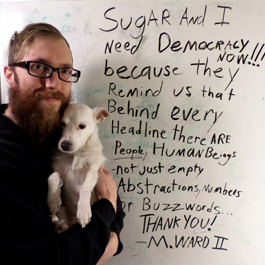 SUGAR AND I
NEED DEMOCRACY
NOW!!!
because they
Remind us that
Behind every
Headline there ARE
People, HUMAN Beings
-not just empty
Abstractions, Numbers
or Buzzwords...
THANK YOU!
-M. WARD II